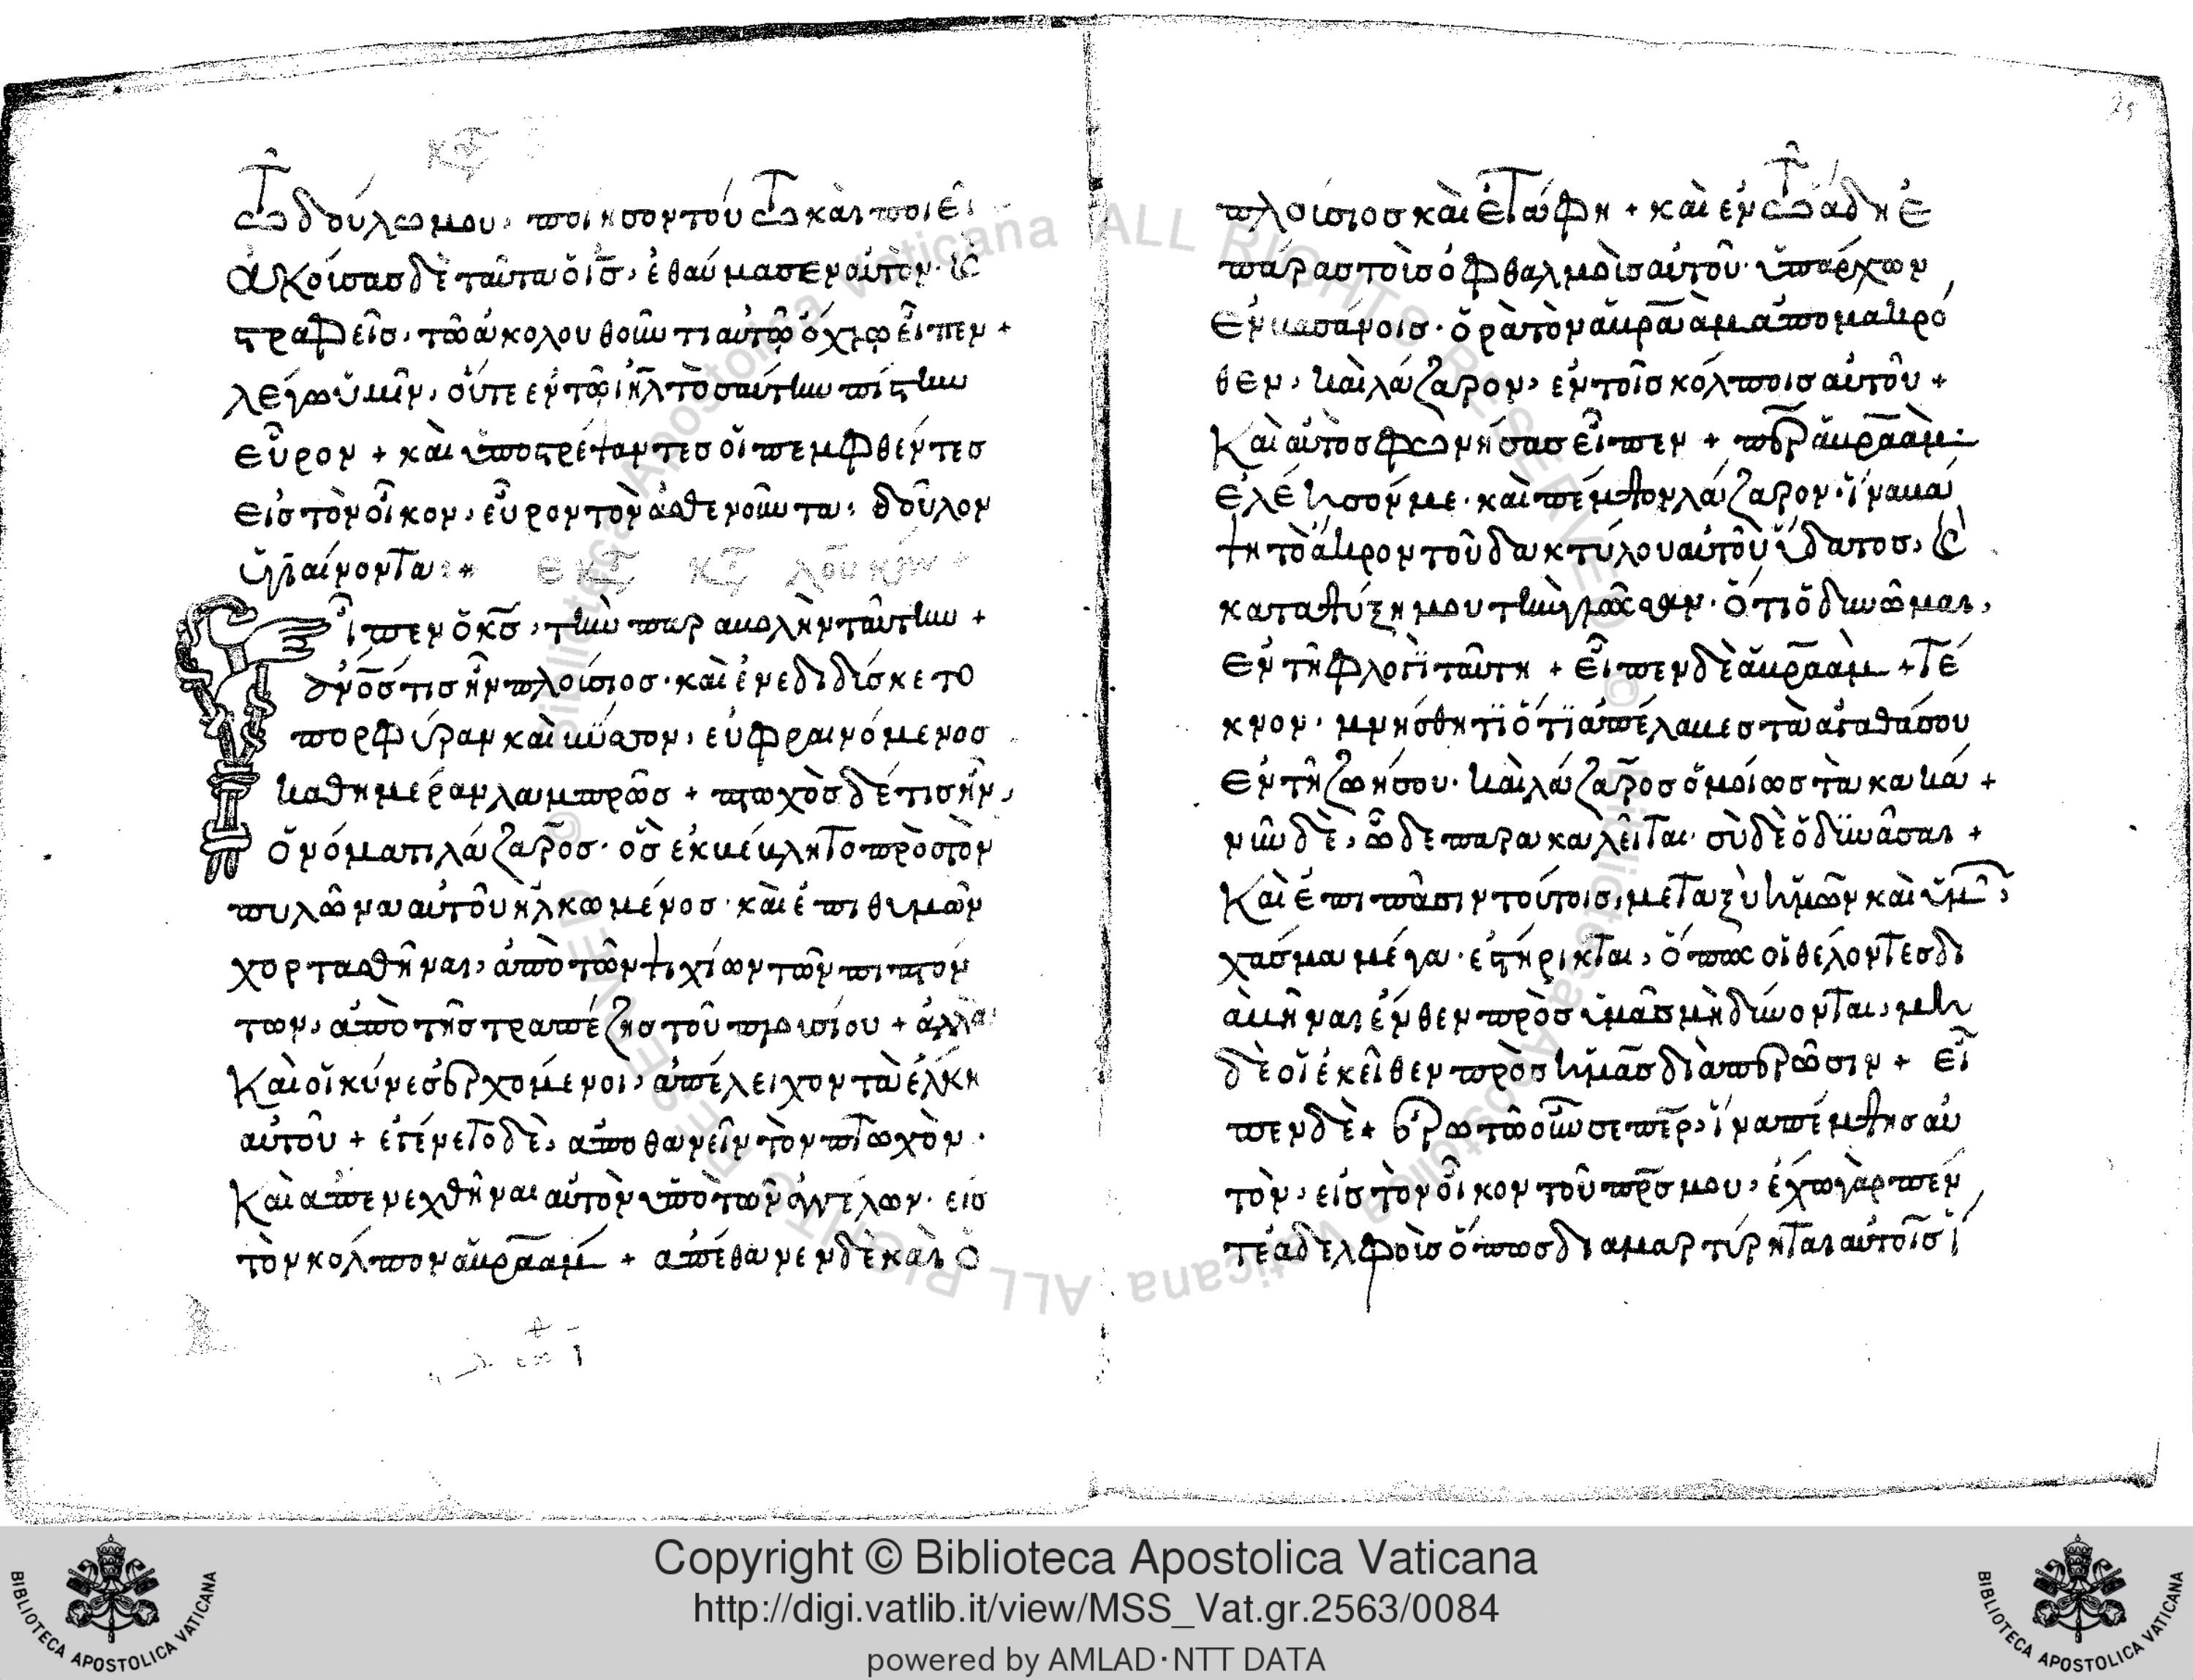 τῶ δούλω μου· ποίησον τούτω καὶ ποιεῖ·
ἀκούσας δὲ ταῦτα ὁ ἰς̅, ἐθαύμασεν αὐτὸν· κ(αὶ)
στραφεὶς, τῶ ἀκολουθοῦντι αὐτῶ ὄχλω εἶπεν +
λέγω ὑμῖν, οὔτε ἐν τῶ ιη̅λ τοσαύτην πίστην
εὗρον + καὶ ὑποστρέψαντες οἱ πεμφθέντες
εἰς τὸν οἶκον, εὗρον τὸν ἀσθενοῦντα, δοῦλον
ὑγιαίνοντα:+
εἶπεν ὁ κς̅, τὴν παραβολὴν ταύτην +
ἀν̅ος τις ἦν πλούσιος· καὶ ἐνεδιδύσκετο
πορφύραν καὶ βύσσον, εὐφραινόμενος
καθημέραν λαμπρῶς + πτωχὸς δέ τις ἦν,
ὀνόματι λάζαρος· ὃς ἐβέβλητο πρὸς τὸν
πυλῶνα αὐτοῦ ἡλκωμένος· καὶ ἐπιθυμῶν
χορτασθῆναι, ἀπὸ τῶν ψιχίων τῶν πιπτόν
των, ἀπὸ τῆς τραπέζης τοῦ πλουσίου + ἀλλὰ
Καὶ οἱ κύνες ἐρχόμενοι, ἀπέλειχον τὰ ἕλκη
αὐτοῦ + ἐγένετο δὲ, ἀποθανεῖν τὸν πτωχὸν·
Καὶ ἀπενεχθῆναι αὐτὸν ὑπὸ τῶν ἀγγέλων· εἰς
τὸν κόλπον ἀβραάμ + ἀπέθανεν δὲ καὶ ὁ
πλούσιος καὶ ἐτάφη + καὶ ἐν τῶ ἅδη ἐ
πάρας τοὶς ὀφθαλμοὶς αὐτοῦ· ὑπάρχων
ἐν βασάνοις· ὁρᾶ τὸν ἀβραὰμ ἀπὸ μακρό
θεν, καὶ λάζαρον, ἐν τοῖς κόλποις αὐτοῦ +
Καὶ αὐτὸς φωνήσας εἶπεν + περ̅ ἀβραὰμ·
ἐλέησόν με· καὶ πέμψον λάζαρον· ἵνα βά
ψη τὸ ἄκρον τοῦ δακτύλου αὐτοῦ ὕδατος, κ(αὶ)
καταψύξη μου τὴν γλῶσσαν· ὅτι ὀδυνῶμαι,
ἐν τῆ φλογὶ ταύτη + εἶπεν δὲ ἀβραὰμ + τέ
κνον· μνήσθητι ὅτι ἀπέλαβες τὰ ἀγαθά σου
ἐν τῆ ζωή σου· καὶ λάζαρος ὁμοίως τὰ κακά +
νῦν δὲ, ὧδε παρακαλεῖται· σὺ δὲ ὀδυνᾶσαι +
Καὶ ἐπὶ πᾶσιν τούτοις, μεταξὺ ἡμῶν καὶ ὑμῶ(ν),
χάσμα μέγα· ἐστήρικται, ὅπως οἱ θέλοντες δι
αβῆναι ἔνθεν πρὸς ὑμᾶς μὴ δύνονται, μη
δὲ οἱ ἐκεῖθεν πρὸς ἡμᾶς διαπερῶσιν + εἶ
πεν δὲ + ἐρωτῶ οὖν σε περ̅, ἵνα πέμψης αὐ
τὸν, εἰς τὸν οἶκον τοῦ πρ̅ς μου, ἔχω γὰρ πέν
τε ἀδελφοὶς ὅπως διαμαρτύρηται αὐτοῖς ἵ
Copyright © Biblioteca Apostolica Vaticana
http://digi.vatlib.it/view/MSS_Vat.gr.2563/0084
powered by AMLAD·NTT DATA
BIBLIOTECA APOSTOLICA VATICANA
BIBLIOTECA APOSTOLICA VATICANA